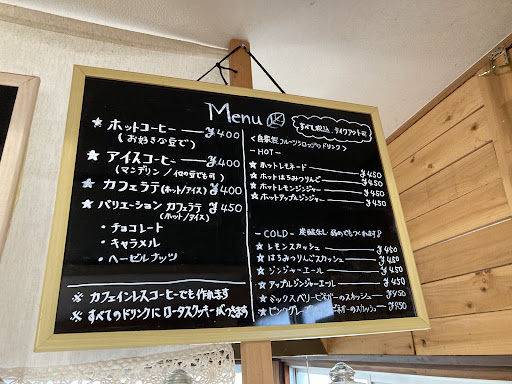 Menu
★ ホットコーヒー ¥400
(お好きな豆で)
★ アイスコーヒー ¥400
(マンデリン/他の豆でも可)
★ カフェラテ(ホット/アイス) ¥400
★ バリエーション カフェラテ ¥450
(ホット/アイス)
・チョコレート
・キャラメル
・ヘーゼルナッツ
※ カフェインレスコーヒーでも作れます
※ すべてのドリンクにロータスクッキーがつきます
すべて税込、テイクアウト可
<自家製フルーツシロップのドリンク>
-HOT-
★ ホットレモネード ¥450
★ ホットはちみつりんご ¥450
★ ホットレモンジンジャー ¥450
★ ホットアップルジンジャー ¥450
-COLD- 炭酸なし 弱めでもつくれます
★ レモンスカッシュ ¥450
★ はちみつりんごスカッシュ ¥450
★ ジンジャーエール ¥450
★ アップルジンジャーエール ¥450
★ ミックスベリービネガーのスカッシュ ¥450
★ ピンクグレープビネガーのスカッシュ ¥450